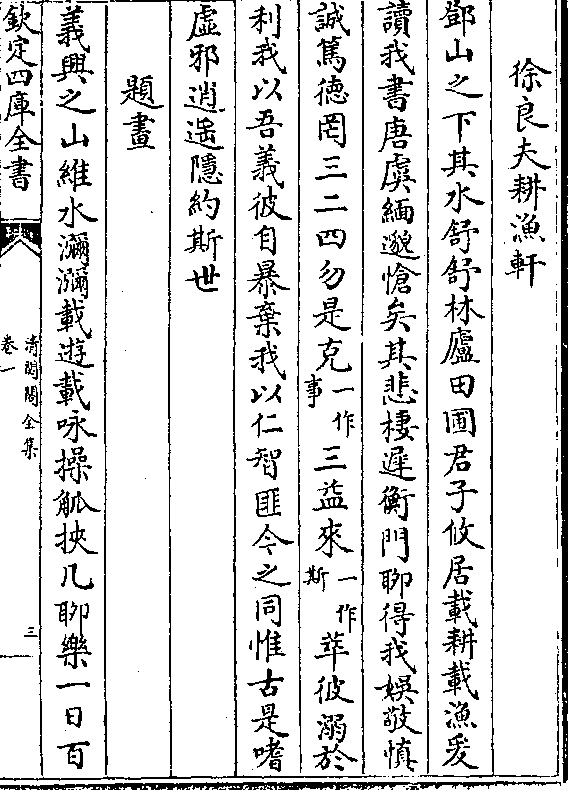 徐良夫耕漁軒
鄧山之下其水舒舒林廬田圃君子攸居載耕載漁爰
讀我書唐虞緬邈愴矣其悲棲遲衡門聊得我娯敬慎
誠篤徳罔三二四勿是克一作事三益來一作斯萃彼溺於
利我以吾義彼自暴棄我以仁智匪今之同惟古是嗜
虚邪逍遥隱約斯世
題畫
義興之山維水瀰瀰載遊載咏操觚挾几聊樂一日百
欽定四庫全書
清閟閣全集
卷一
三